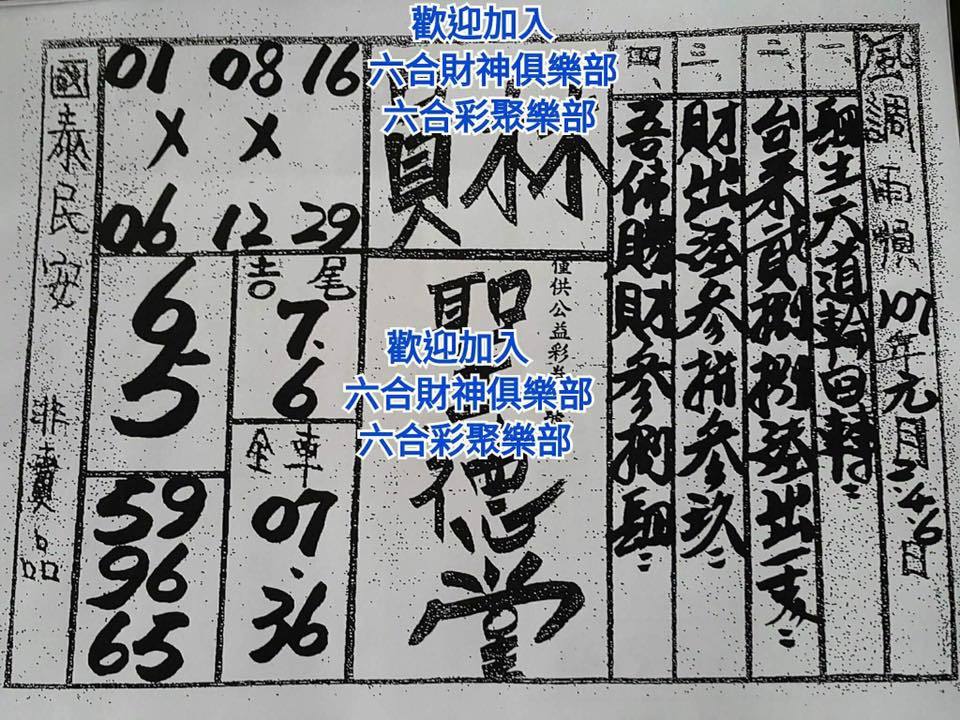 歡迎加入
六合財神俱樂部
六合彩聚樂部
風調雨順 107年元月2.4.6日
一、
二、
三、
四、
台柒貳捌捌陸出一支:
財出陸參拼參玖:
吾佛賜財參捌
林
員
僅供公益彩券
聖德堂
歡迎加入
六合財神俱樂部
六合彩聚樂部
01 08 16
X X
06 12 29
吉尾
7.6
6.5
全車
07.36
59
96
65
國泰民安 非賣品